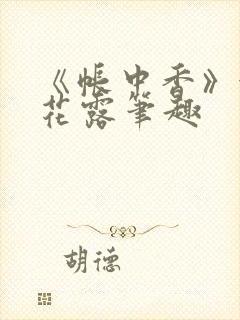 《帐中香》
花露笔趣
胡德